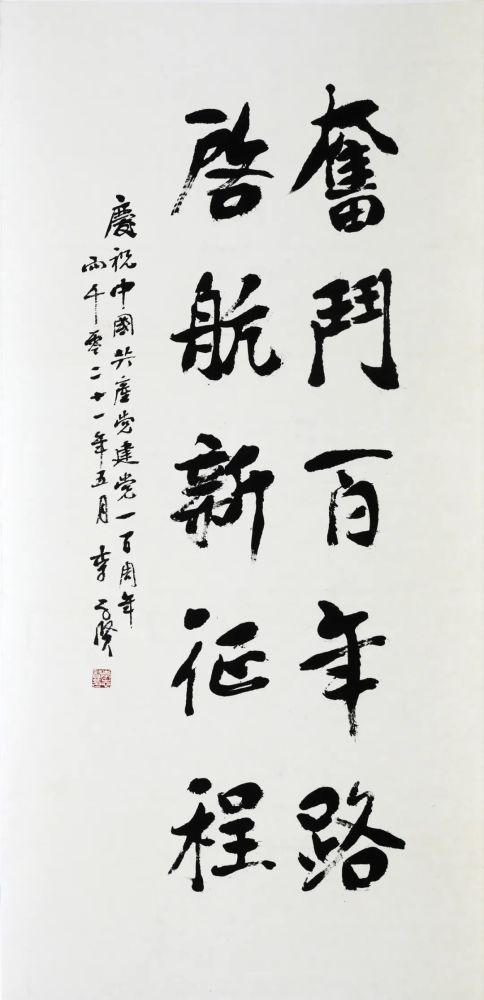 奮鬥百年路
啓航新征程
慶祝中國共產党建党一百周年
兩千零二十一年五月 李子賢